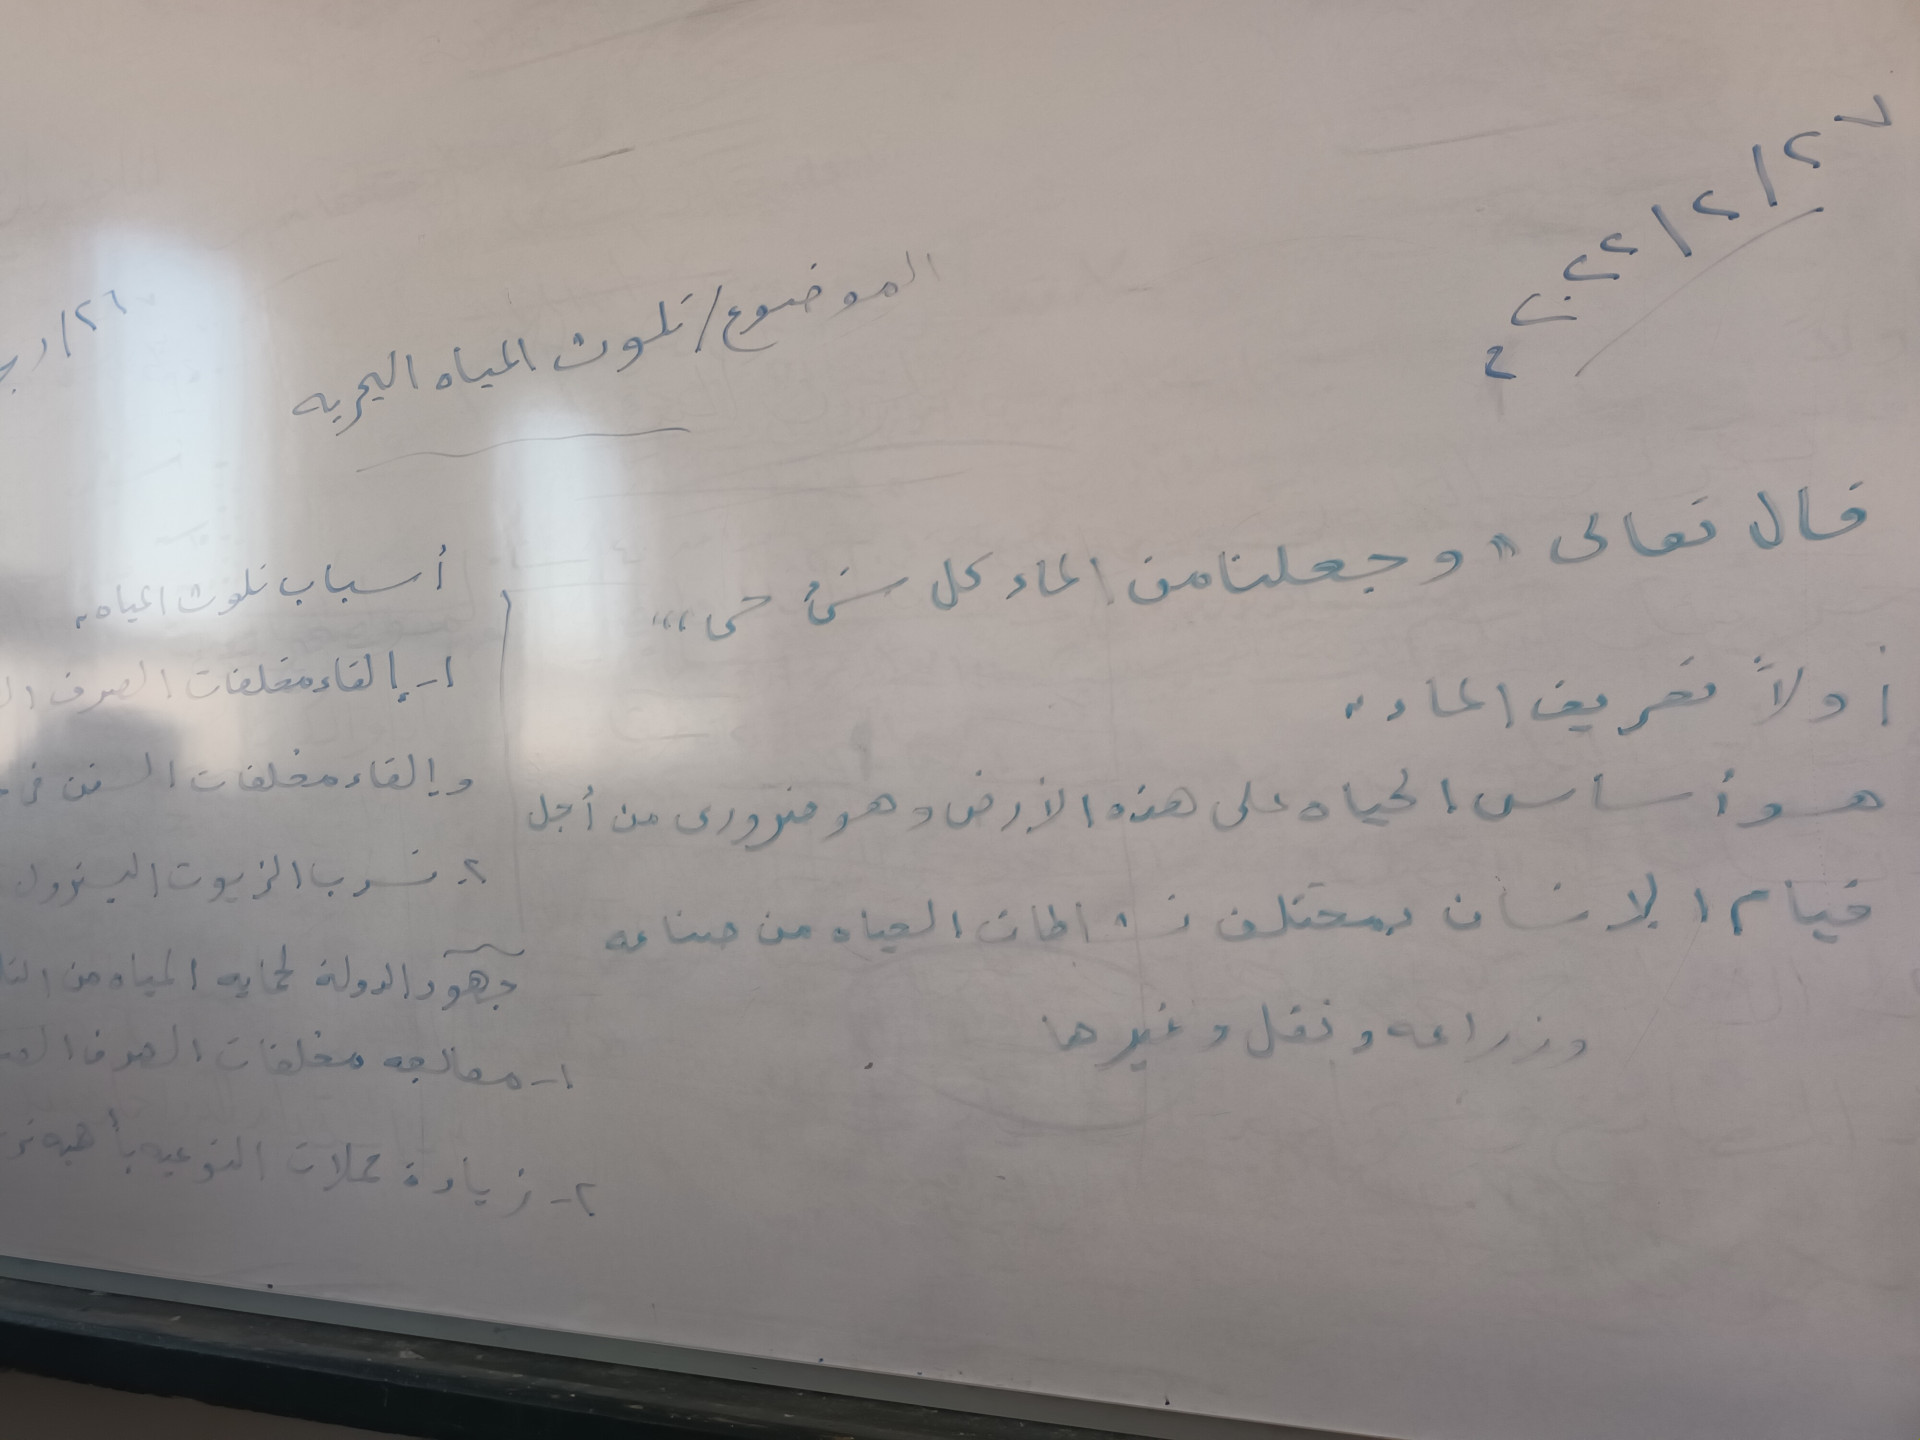 ٢٧/٢/٢٠٢٢م
٢٦/رجـ
الموضوع/تلوث المياه البحريه
قال تعالى "وجعلنا من الماء كل شئ حى"
أولاً تعريف الماء:
هو أساس الحياه على هذه الأرض وهو ضرورى من أجل
قيام الإنسان بمختلف نشاطات الحياه من صناعه
وزراعه ونقل وغيرها
أسباب تلوث المياه:
١- إلقاء مخلفات الصرف الـ
وإلقاء مخلفات السفن فى
٢- تسرب الزيوت البترول
جهود الدولة لحمايه المياه من التلـ
١- معالجه مخلفات الصرف الصـ
٢- زيادة حملات التوعيه بأهميه تر